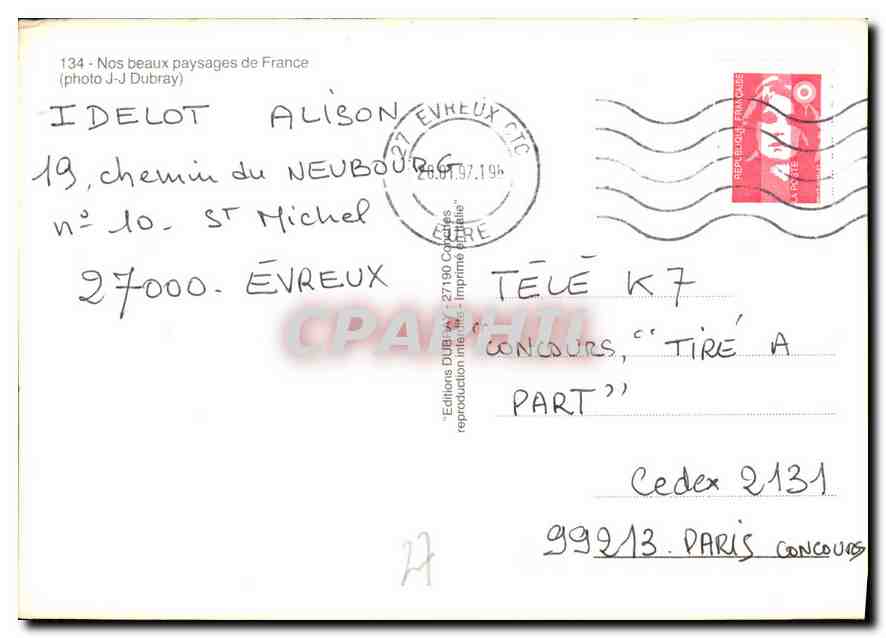 134 - Nos beaux paysages de France
(photo J-J Dubray)
IDELOT ALISON
19, chemin du NEUBOURG
n° 10 - ST Michel
27000 - ÉVREUX
27 EVREUX CTC
EURE
REPUBLIQUE FRANÇAISE
LA POSTE
"Editions DUBRAY - 27190 Conches
reproduction interdite - Imprimé en Italie"
CPAPHIL
TÉLÉ K7
"CONCOURS, "TIRÉ A
PART"
Cedex 2131
99213 - PARIS CONCOURS
27